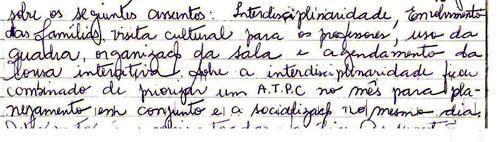 sobre os seguintes assuntos: Interdisciplinaridade, Envolvimento
das famílias, visita cultural para os professores, uso da
quadra, organizaçao da sala e agendamento da
lousa interativa. Sobre a interdisciplinaridade ficou
combinado de priorizar um A.T.P.C no mês para pla-
nejamento em conjunto e a socializaçao no mesmo dia.